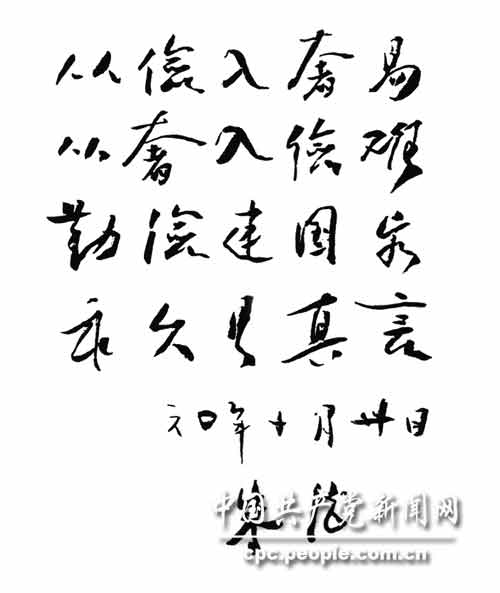 从儉入奢易
从奢入儉难
勤儉建国家
永久是真言
六〇年十月廿日
中国共产党新闻网
cpc.people.com.cn